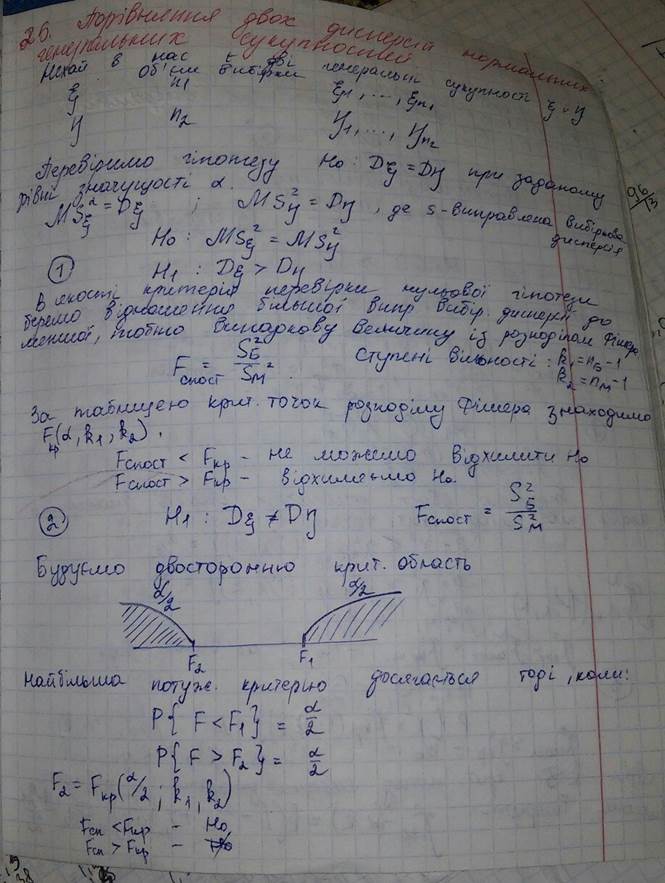 26. Порівняння двох дисперсій нормальних
генеральних сукупностей
Нехай в нас є дві генеральні сукупності ξ і η
об'єм вибірки
ξ n1 ξ1, ..., ξn1
η n2 η1, ..., ηn2
Перевіримо гіпотезу H0 : Dξ = Dη при заданому
рівні значущості α.
MSξ² = Dξ ; MSη² = Dη, де s - виправлена вибіркова
дисперсія
H0 : MSξ² = MSη²
① H1 : Dξ > Dη
В якості критерія перевірки нульової гіпотези
беремо відношення більшої випр. вибір. дисперсії до
меншої, тобто випадкову величину із розподілом Фішера
Fспост = SБ²/SМ². Ступені вільності : k1 = nБ - 1
k2 = nМ - 1
За таблицею крит. точок розподілу Фішера знаходимо
Fкр(α, k1, k2).
Fспост < Fкр - не можемо відхилити H0
Fспост > Fкр - відхиляємо H0.
② H1 : Dξ ≠ Dη Fспост = SБ²/SМ²
Будуємо двосторонню крит. область
α/2 α/2
F2 F1
Найбільша потуж. критерію досягається тоді, коли:
P{F < F1} = α/2
P{F > F2} = α/2
F2 = Fкр(α/2 ; k1, k2)
Fсп < Fкр - H0
Fсп > Fкр - H0